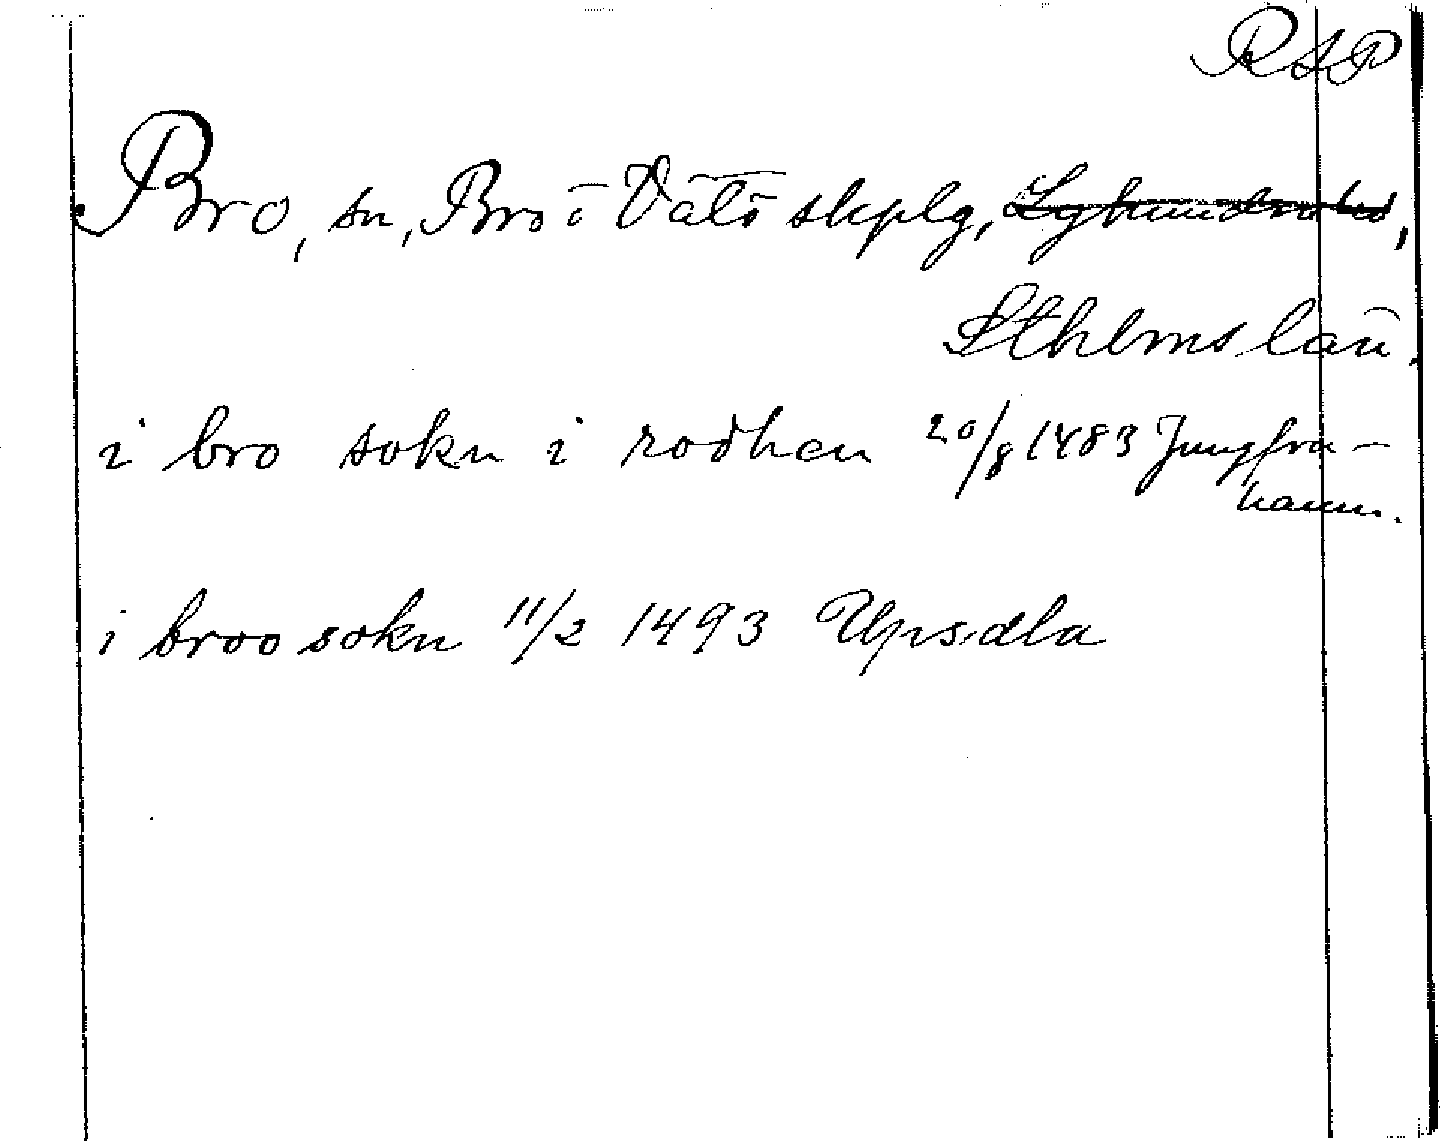 RAP
Bro, sn, Bro o Vätö skplg, Lyhundra hd,
Sthlms län.
i bro sokn i rodhen 20/8 1483 Jungfru-
hamn.
i broo sokn 11/2 1493 Upsala